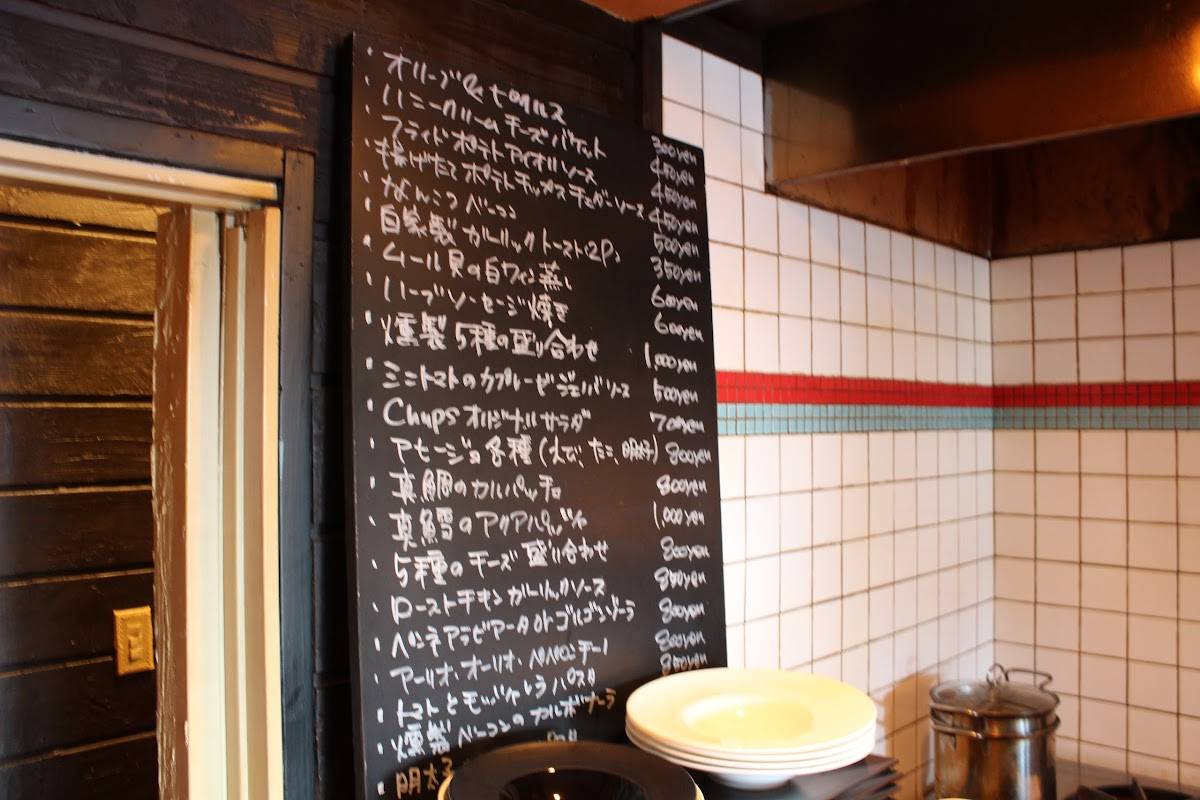 ・オリーブ&ピクルス 300yen
・ハニークリームチーズバケット 450yen
・フライドポテトアイオリソース 450yen
・揚げたてポテトチップスチェダーソース 450yen
・なんこつベーコン 500yen
・自家製ガーリックトースト2P 350yen
・ムール貝の白ワイン蒸し 600yen
・ハーブソーセージ焼き 600yen
・燻製5種の盛り合わせ 1,000yen
・ミニトマトのカプレーゼジェノバソース 500yen
・Chupsオリジナルサラダ 700yen
・アヒージョ各種(えび、たこ、明太子) 800yen
・真鯛のカルパッチョ 800yen
・真鱈のアクアパッツァ 1,000yen
・5種のチーズ盛り合わせ 800yen
・ローストチキンガーリックソース 850yen
・ペンネアラビアータorゴルゴンゾーラ 800yen
・アーリオ・オーリオ・ペペロンチーノ 800yen
・トマトとモッツァレラパスタ 850yen
・燻製ベーコンのカルボナーラ
・明太子